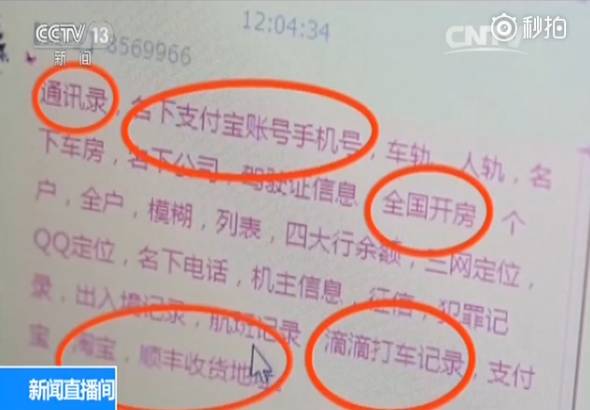 CCTV 13
新闻
12:04:34
CNTV
秒拍
8569966
通讯录，名下支付宝账号手机号，车轨，人轨，名
下车房，名下公司，驾驶证信息，全国开房，个
户，全户，模糊，列表，四大行余额，三网定位，
QQ定位，名下电话，机主信息，征信，犯罪记
录，出入境记录，航班记录，滴滴打车记录，支付
宝，淘宝，顺丰收货地
新闻直播间